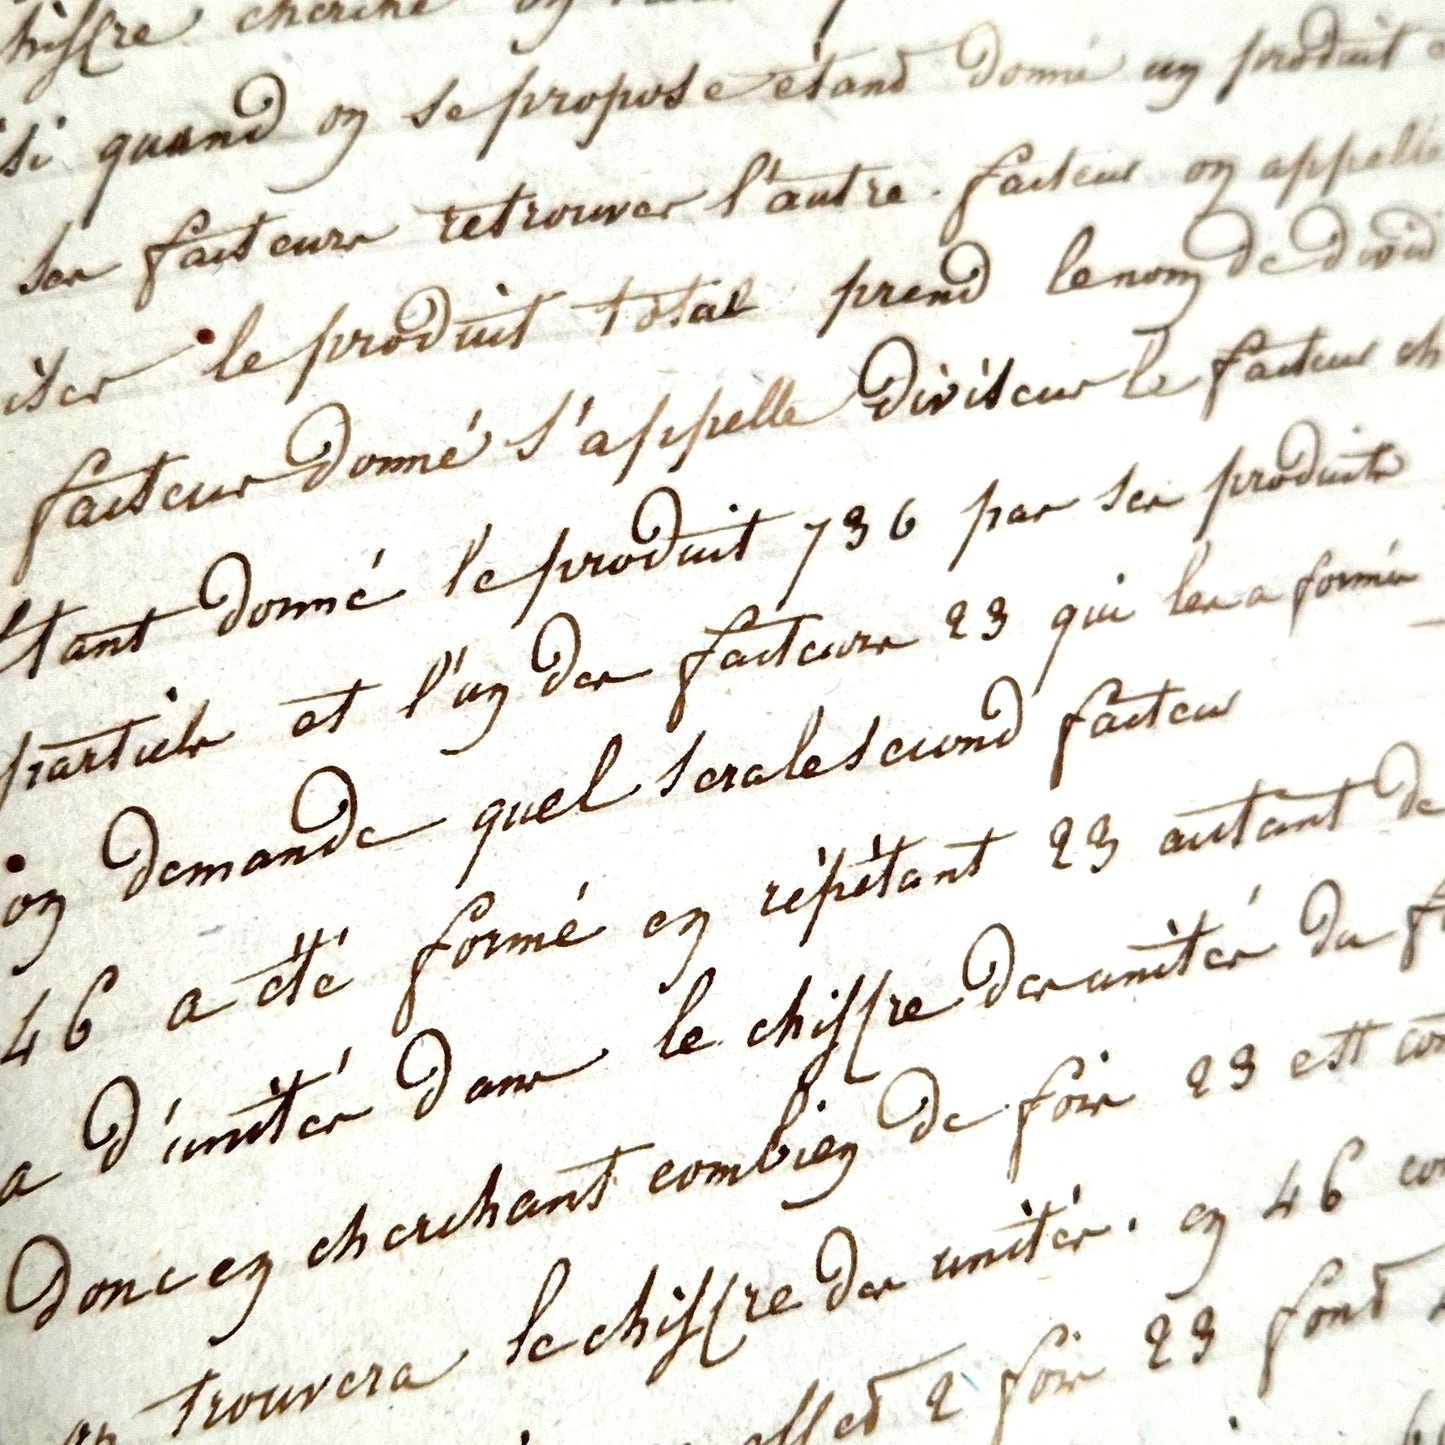 chiffre cherché on
si quand on se propose étand donné un produit
ses facteurs retrouver l'autre. facteur on appelle
iser le produit total prend le nom de divid
facteur donné s'appelle diviseur le facteur ch
Etant donné le produit 736 par ses produits
partiels et l'un des facteurs 23 qui les a formés
on demande quel sera le second facteur
46 a été formé en répétant 23 autant de
a d'unités dans le chiffre des unités du f
Donc en cherchant combien de fois 23 est con
on trouvera le chiffre des unités. en 46 co
effet 2 fois 23 font